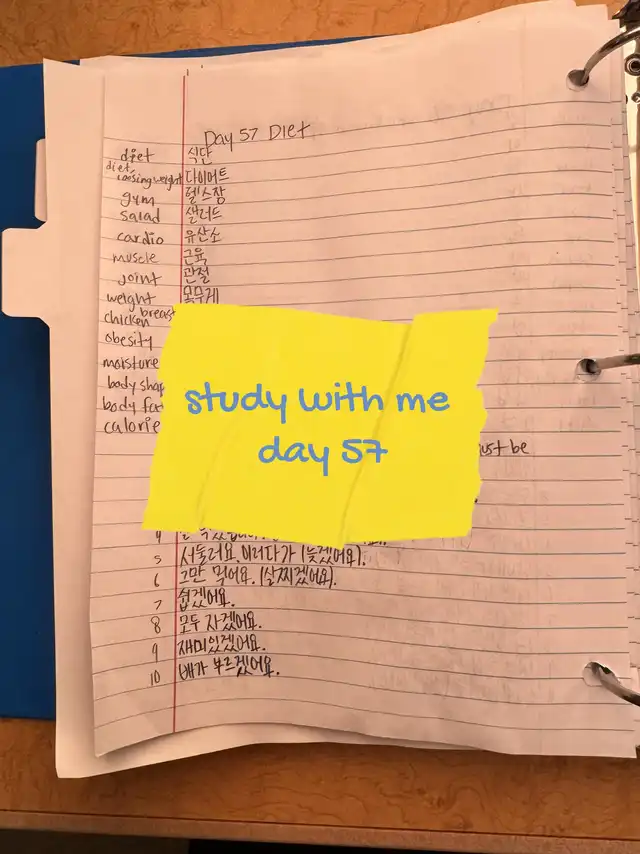 Day 57 Diet
diet 식단
diet, loosing weight 다이어트
gym 헬스장
salad 샐러드
cardio 유산소
muscle 근육
joint 관절
weight 몸무게
chicken breast
obesity
moisture
body shap
body fa
calorie
study with me
day 57
ust be
4
5 서둘러요. 이러다가 (늦겠어요).
6 그만 먹어요. (살찌겠어요).
7 쉽겠어요.
8 모두 자겠어요.
9 재미있겠어요.
10 배가 부르겠어요.